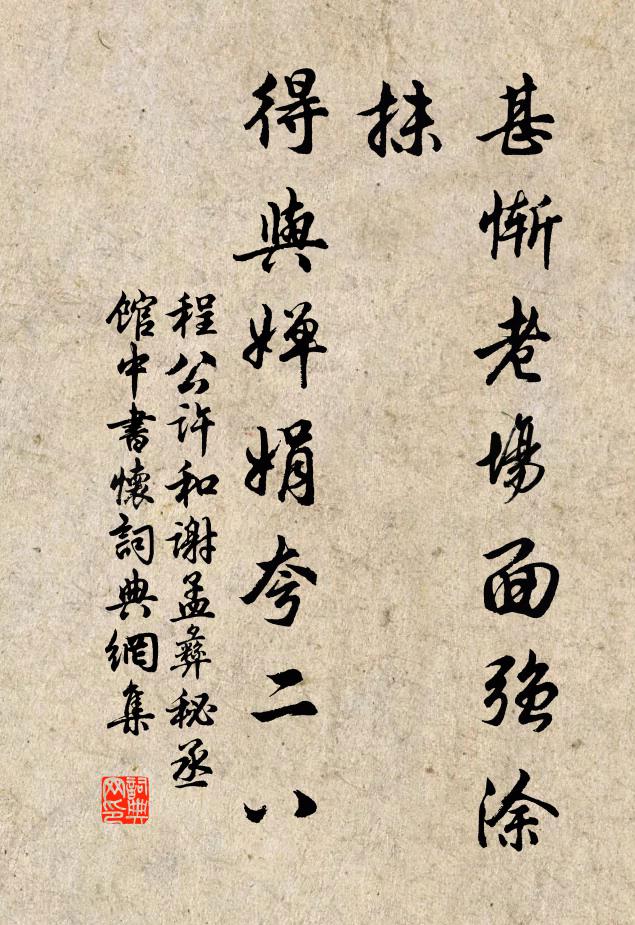 甚慚老場面強涂
抹
得與嬋娟夸二八
程公許和謝孟彝秘丞
館中書懷詞典網集
詞典
网印